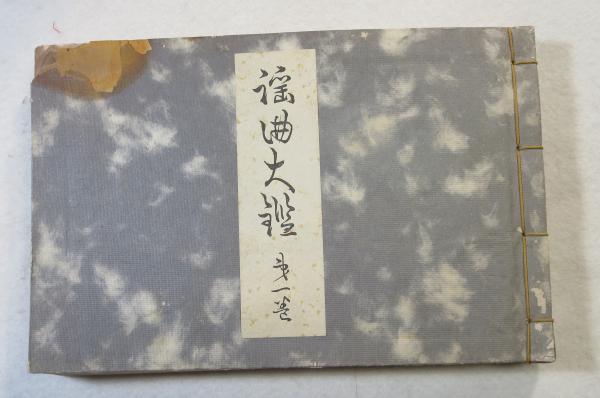 謡曲大鑑 第一巻